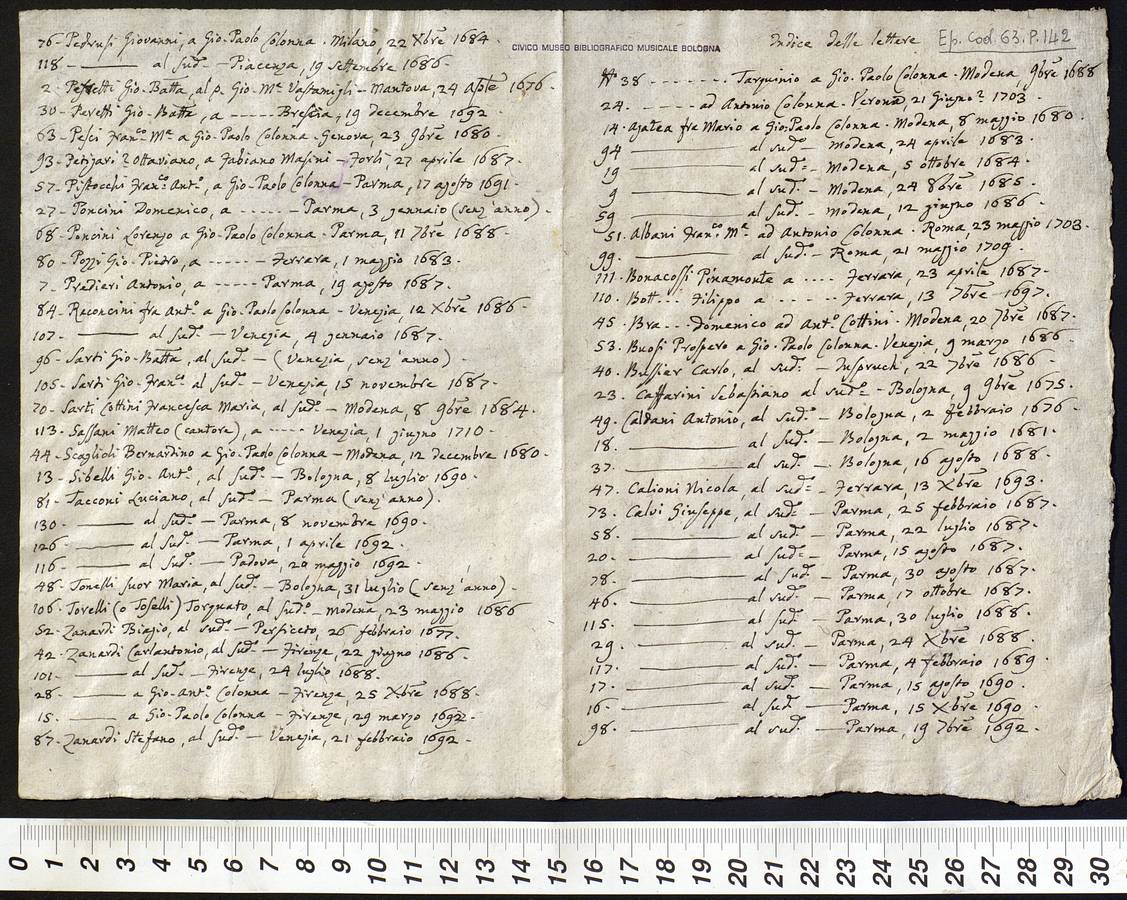 76 - Pedrusi Giovanni, a Gio-Paolo Colonna - Milano, 22 Xbre 1684.
118 - ——— al sud.º - Piacenza, 19 settembre 1686 -
2 - Gio-Batta, al p. Gio-Mª Vastamigli - Mantova, 24 1676 -
30 - Peretti Gio-Batta, a ----- Brescia, 19 decembre 1692 -
63 - Pesci Fran.co Mª a Gio-Paolo Colonna - Genova, 23 9bre 1680 -
93 - Ottaviano, a Fabiano Masini - Forlì, 27 aprile 1687 -
57 - Pistocchi Fran.º Ant.º, a Gio-Paolo Colonna - Parma, 17 agosto 1691 -
27 - Poncini Domenico, a ----- - Parma, 3 gennaio (senz'anno) -
68 - Poncini Lorenzo a Gio-Paolo Colonna - Parma, 11 7bre 1688 -
80 - Pozzi Gio-Piedro, a ----- - Ferrara, 1 maggio 1683 -
7 - Predieri Antonio, a ----- Parma, 19 agosto 1687.
84 - Raconcini fra Ant.º a Gio-Paolo Colonna - Venezia, 12 Xbre 1686 -
107 - ——— al sud.º - Venezia, 4 gennaio 1687.
96 - Sarti Gio-Batta, al sud.º - (Venezia, senz'anno) -
105 - Sarti Gio-Fran.º al sud.º - Venezia, 15 novembre 1687 -
70 - Sarti Cottini Francesca Maria, al sud.º - Modena, 8 9bre 1684 -
113 - Sassani Matteo (cantore), a ----- Venezia, 1 giugno 1710 -
44 - Scaglioli Bernardino a Gio-Paolo Colonna - Modena, 12 decembre 1680 -
13 - Sibelli Gio-Ant.º, al sud.º - Bologna, 8 luglio 1690 -
81 - Tacconi Luciano, al sud.º - Parma (senz'anno) -
130 - ——— al sud.º - Parma, 8 novembre 1690 -
126 - ——— al sud.º - Parma, 1 aprile 1692 -
116 - ——— al sud.º - Padova, 20 maggio 1692 -
48 - Tonelli suor Maria, al sud.º - Bologna, 31 luglio (senz'anno) -
106 - Torelli (o Toselli) Torquato, al sud.º - Modena, 23 maggio 1686
52 - Zanardi Biagio, al sud.º - Persiceto, 26 febbraio 1677.
42 - Zanardi Carlantonio, al sud.º - Firenze, 22 giugno 1686 -
101 - ——— al sud.º - Firenze, 24 luglio 1688 -
28 - ——— a Gio-Ant.º Colonna - Firenze, 25 Xbre 1688 -
15 - ——— a Gio-Paolo Colonna - Firenze, 29 marzo 1692 -
87 - Zanardi Stefano, al sud.º - Venezia, 21 febbraio 1692 -
CIVICO MUSEO BIBLIOGRAFICO MUSICALE BOLOGNA
Indice delle lettere
Ep. Cod. 63. P. 142
Nº 38 ------- Tarquinio a Gio-Paolo Colonna - Modena, 9bre 1688
24 - ----- ad Antonio Colonna - Verona, 21 Giugno? 1703 -
14 - Agatea fra Mario a Gio-Paolo Colonna - Modena, 8 maggio 1680 -
94 ——— al sud.º Modena, 24 aprile 1683 -
19 ——— al sud.º - Modena, 5 ottobre 1684 -
9 ——— al sud.º - Modena, 24 8bre 1685 -
59 ——— al sud.º - Modena, 12 giugno 1686 -
51 - Albani Fran.co Mª ad Antonio Colonna - Roma, 23 maggio 1703 -
99 - ——— al sud.º - Roma, 21 maggio 1709 -
111 - Bonacossi Pinamonte a ---- Ferrara, 23 aprile 1687 -
110 - Bott... Filippo a ----- Ferrara, 13 7bre 1697 -
45 - Bra... Domenico ad Ant.º Cottini - Modena, 20 7bre 1687 -
53 - Buosi Prospero a Gio-Paolo Colonna - Venezia, 9 marzo 1686 -
40 - Bussier Carlo, al sud.º - Inspruch, 22 7bre 1686 -
23 - Caffarini Sebastiano al sud.º - Bologna, 9 9bre 1675 -
49 - Caldani Antonio, al sud.º - Bologna, 2 febbraio 1676 -
18 - ——— al sud.º - Bologna, 2 maggio 1681 -
37 - ——— al sud.º - Bologna, 16 agosto 1688 -
47 - Calioni Nicola, al sud.º - Ferrara, 13 Xbre 1693 -
73 - Calvi Giuseppe, al sud.º - Parma, 25 febbraio 1687 -
58 - ——— al sud.º - Parma, 22 luglio 1687 -
20 - ——— al sud.º - Parma, 15 agosto 1687 -
78 - ——— al sud.º - Parma, 30 agosto 1687 -
46 - ——— al sud.º - Parma, 17 ottobre 1687 -
115 - ——— al sud.º - Parma, 30 luglio 1688 -
29 - ——— al sud.º Parma, 24 Xbre 1688 -
117 - ——— al sud.º - Parma, 4 febbraio 1689 -
17 - ——— al sud.º - Parma, 15 agosto 1690 -
16 - ——— al sud.º - Parma, 15 Xbre 1690 -
98 - ——— al sud.º - Parma, 19 7bre 1692 -
0 1 2 3 4 5 6 7 8 9 10 11 12 13 14 15 16 17 18 19 20 21 22 23 24 25 26 27 28 29 30